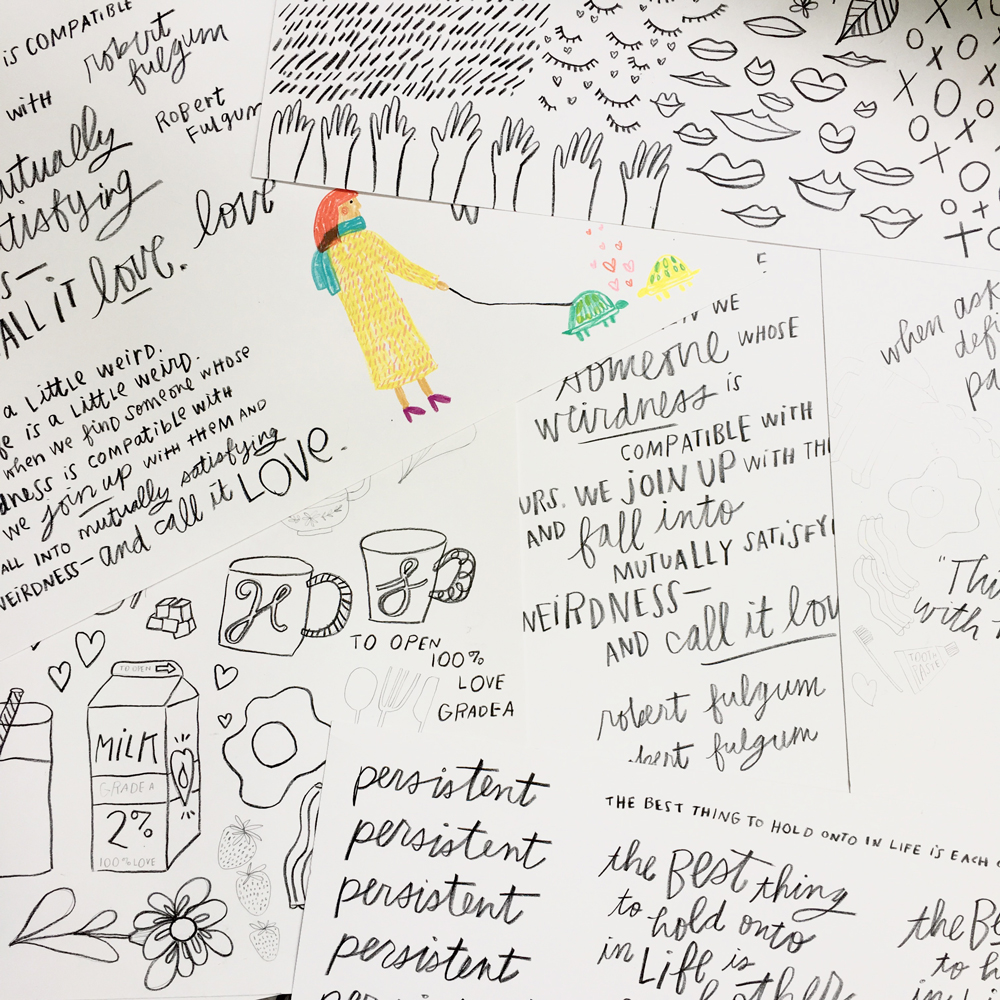 is COMPATIBLE
robert
fulgum
with
ROBERT
FULGUM
love
ALL iT love.
a LiTTLE WEiRD.
is a LiTTLE WEiRD.
when we find someone whose
is compatible with
we join up with them AND
iNTO mutually satisfying
WEiRDNESS—and call it LOVE.
WE
someone WHOSE
weirdness is
COMPATIBLE WITH
WE JOIN UP WITH
AND fall into
MUTUALLY
WEiRDNESS—
AND call it
robert fulgum
fulgum
when
"
with
TOOTH
PASTE
TO OPEN
100%
LOVE
GRADE A
H
L
TO OPEN
MiLK
GRADE A
2%
100% LOVE
persistent
persistent
persistent
persistent
THE BEST THING TO HOLD ONTO IN LIFE IS EACH
the Best thing
to hold onto
in Life is
the
to
in
X O X O